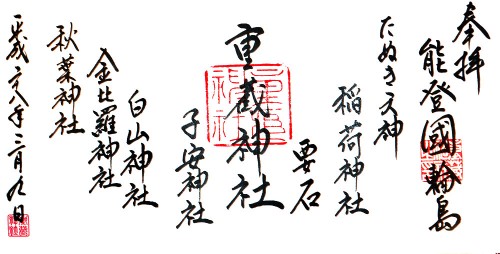 奉拝
能登國輪島
たぬき天神
稲荷神社
要石
重蔵神社
子安神社
白山神社
金比羅神社
秋葉神社
平成二八年三月九日